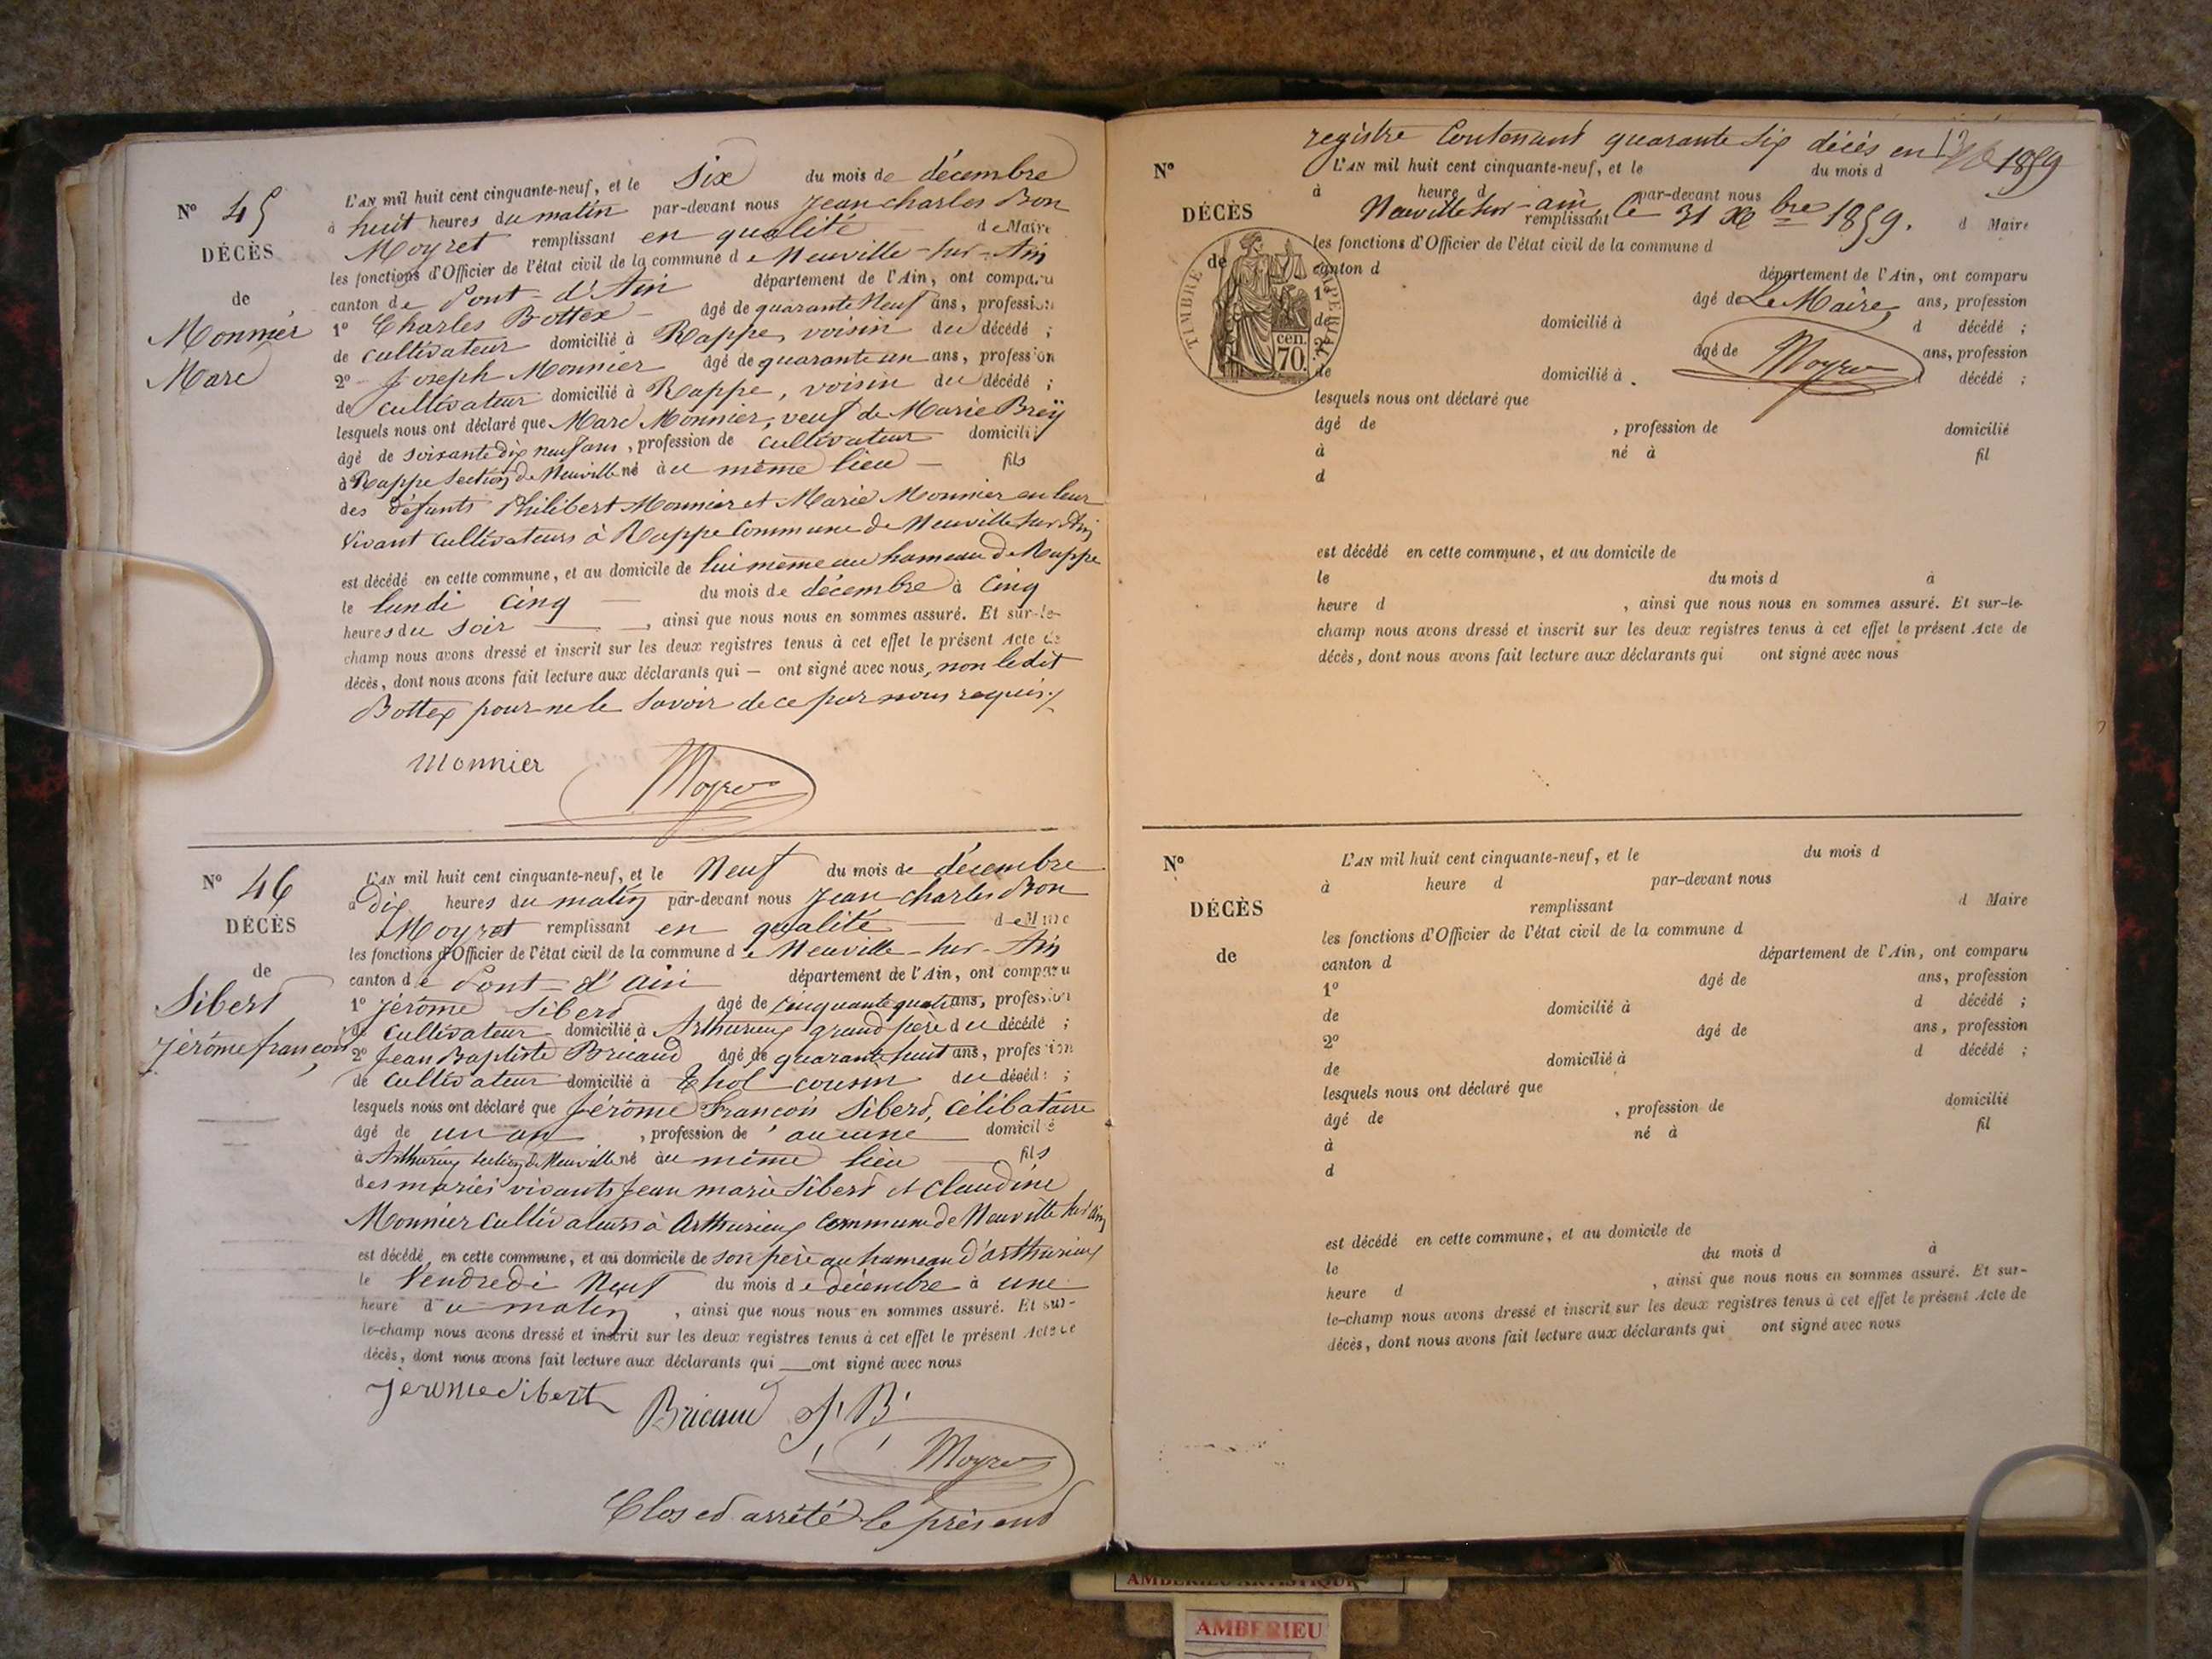 N° 45
DÉCÈS
de
Monnier
Marc
L'AN mil huit cent cinquante-neuf, et le Six du mois de décembre
à huit heures du matin par-devant nous Jean charles Bon
Moyret remplissant en qualité de Maire
les fonctions d'Officier de l'état civil de la commune de Neuville-sur-Ain
canton de Pont-d'Ain département de l'Ain, ont comparu
1° Charles Bottex âgé de quarante Neuf ans, profession
de cultivateur domicilié à Rappe, voisin du décédé ;
2° Joseph Monnier âgé de quarante un ans, profession
de cultivateur domicilié à Rappe, voisin du décédé ;
lesquels nous ont déclaré que Marc Monnier, veuf de Marie Brey
âgé de soixante dix neuf ans, profession de cultivateur domicilié
à Rappe Section de Neuville né au même lieu — fils
des défunts Philibert Monnier et Marie Monnier en leur
vivant cultivateurs à Rappe Commune de Neuville sur Ain
est décédé en cette commune, et au domicile de lui même au hameau de Rappe
le lundi cinq — du mois de décembre à cinq
heures du soir —, ainsi que nous nous en sommes assuré. Et sur-le-
champ nous avons dressé et inscrit sur les deux registres tenus à cet effet le présent Acte de
décès, dont nous avons fait lecture aux déclarants qui — ont signé avec nous, non ledit
Bottex pour ne le savoir de ce par nous requis
Monnier Moyret
N° 46
DÉCÈS
de
Sibert
Jérôme françois
L'AN mil huit cent cinquante-neuf, et le Neuf du mois de décembre
à dix heures du matin par-devant nous Jean charles Bon
Moyret remplissant en qualité — de Maire
les fonctions d'Officier de l'état civil de la commune de Neuville-sur-Ain
canton de Pont-d'ain département de l'Ain, ont comparu
1° Jérôme Sibert âgé de cinquante quatre ans, profession
de cultivateur domicilié à Arthurieux grand père du décédé ;
2° Jean Baptiste Bricaud âgé de quarante huit ans, profession
de cultivateur domicilié à Thol cousin du décédé ;
lesquels nous ont déclaré que Jérôme François Sibert, célibataire
âgé de un an, profession de aucune domicilié
à Arthurieux section de Neuville né au même lieu — fils
des mariés vivants Jean marie Sibert et Claudine
Monnier Cultivateurs à Arthurieux Commune de Neuville sur ain
est décédé en cette commune, et au domicile de son père au hameau d'arthurieux
le Vendredi Neuf du mois de décembre à une
heure du matin, ainsi que nous nous en sommes assuré. Et sur-
le-champ nous avons dressé et inscrit sur les deux registres tenus à cet effet le présent Acte de
décès, dont nous avons fait lecture aux déclarants qui — ont signé avec nous
jerome sibert Bricaud J. B.
Moyret
Clos et arrêté le présent
registre Contenant quarante six décès en 1859
N°
DÉCÈS
de
TIMBRE IMPERIAL
70 cen.
L'AN mil huit cent cinquante-neuf, et le du mois d
à heure d par-devant nous
Neuville sur-ain, le 31 Xbre 1859.
remplissant d Maire
les fonctions d'Officier de l'état civil de la commune d
canton d département de l'Ain, ont comparu
1° âgé de ans, profession
Le Maire,
de domicilié à d décédé ;
2° âgé de ans, profession
Moyret
de domicilié à d décédé ;
lesquels nous ont déclaré que
âgé de , profession de domicilié
à né à fil
d
est décédé en cette commune, et au domicile de
le du mois d à
heure d , ainsi que nous nous en sommes assuré. Et sur-le-
champ nous avons dressé et inscrit sur les deux registres tenus à cet effet le présent Acte de
décès, dont nous avons fait lecture aux déclarants qui ont signé avec nous
N°
DÉCÈS
de
L'AN mil huit cent cinquante-neuf, et le du mois d
à heure d par-devant nous
remplissant d Maire
les fonctions d'Officier de l'état civil de la commune d
canton d département de l'Ain, ont comparu
1° âgé de ans, profession
de domicilié à d décédé ;
2° âgé de ans, profession
de domicilié à d décédé ;
lesquels nous ont déclaré que
âgé de , profession de domicilié
à né à fil
d
est décédé en cette commune, et au domicile de
le du mois d à
heure d , ainsi que nous nous en sommes assuré. Et sur-
le-champ nous avons dressé et inscrit sur les deux registres tenus à cet effet le présent Acte de
décès, dont nous avons fait lecture aux déclarants qui ont signé avec nous
AMBERIEU ARTISTIQUE
AMBERIEU